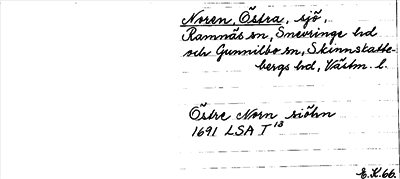 Noren, Östra, sjö,
Ramnäs sn, Snevringe hd
och Gunnilbo sn, Skinnskatte-
bergs hd, Västm. l.
Östre Norn siöhn
1691 LSA T 13
E.K. 66.